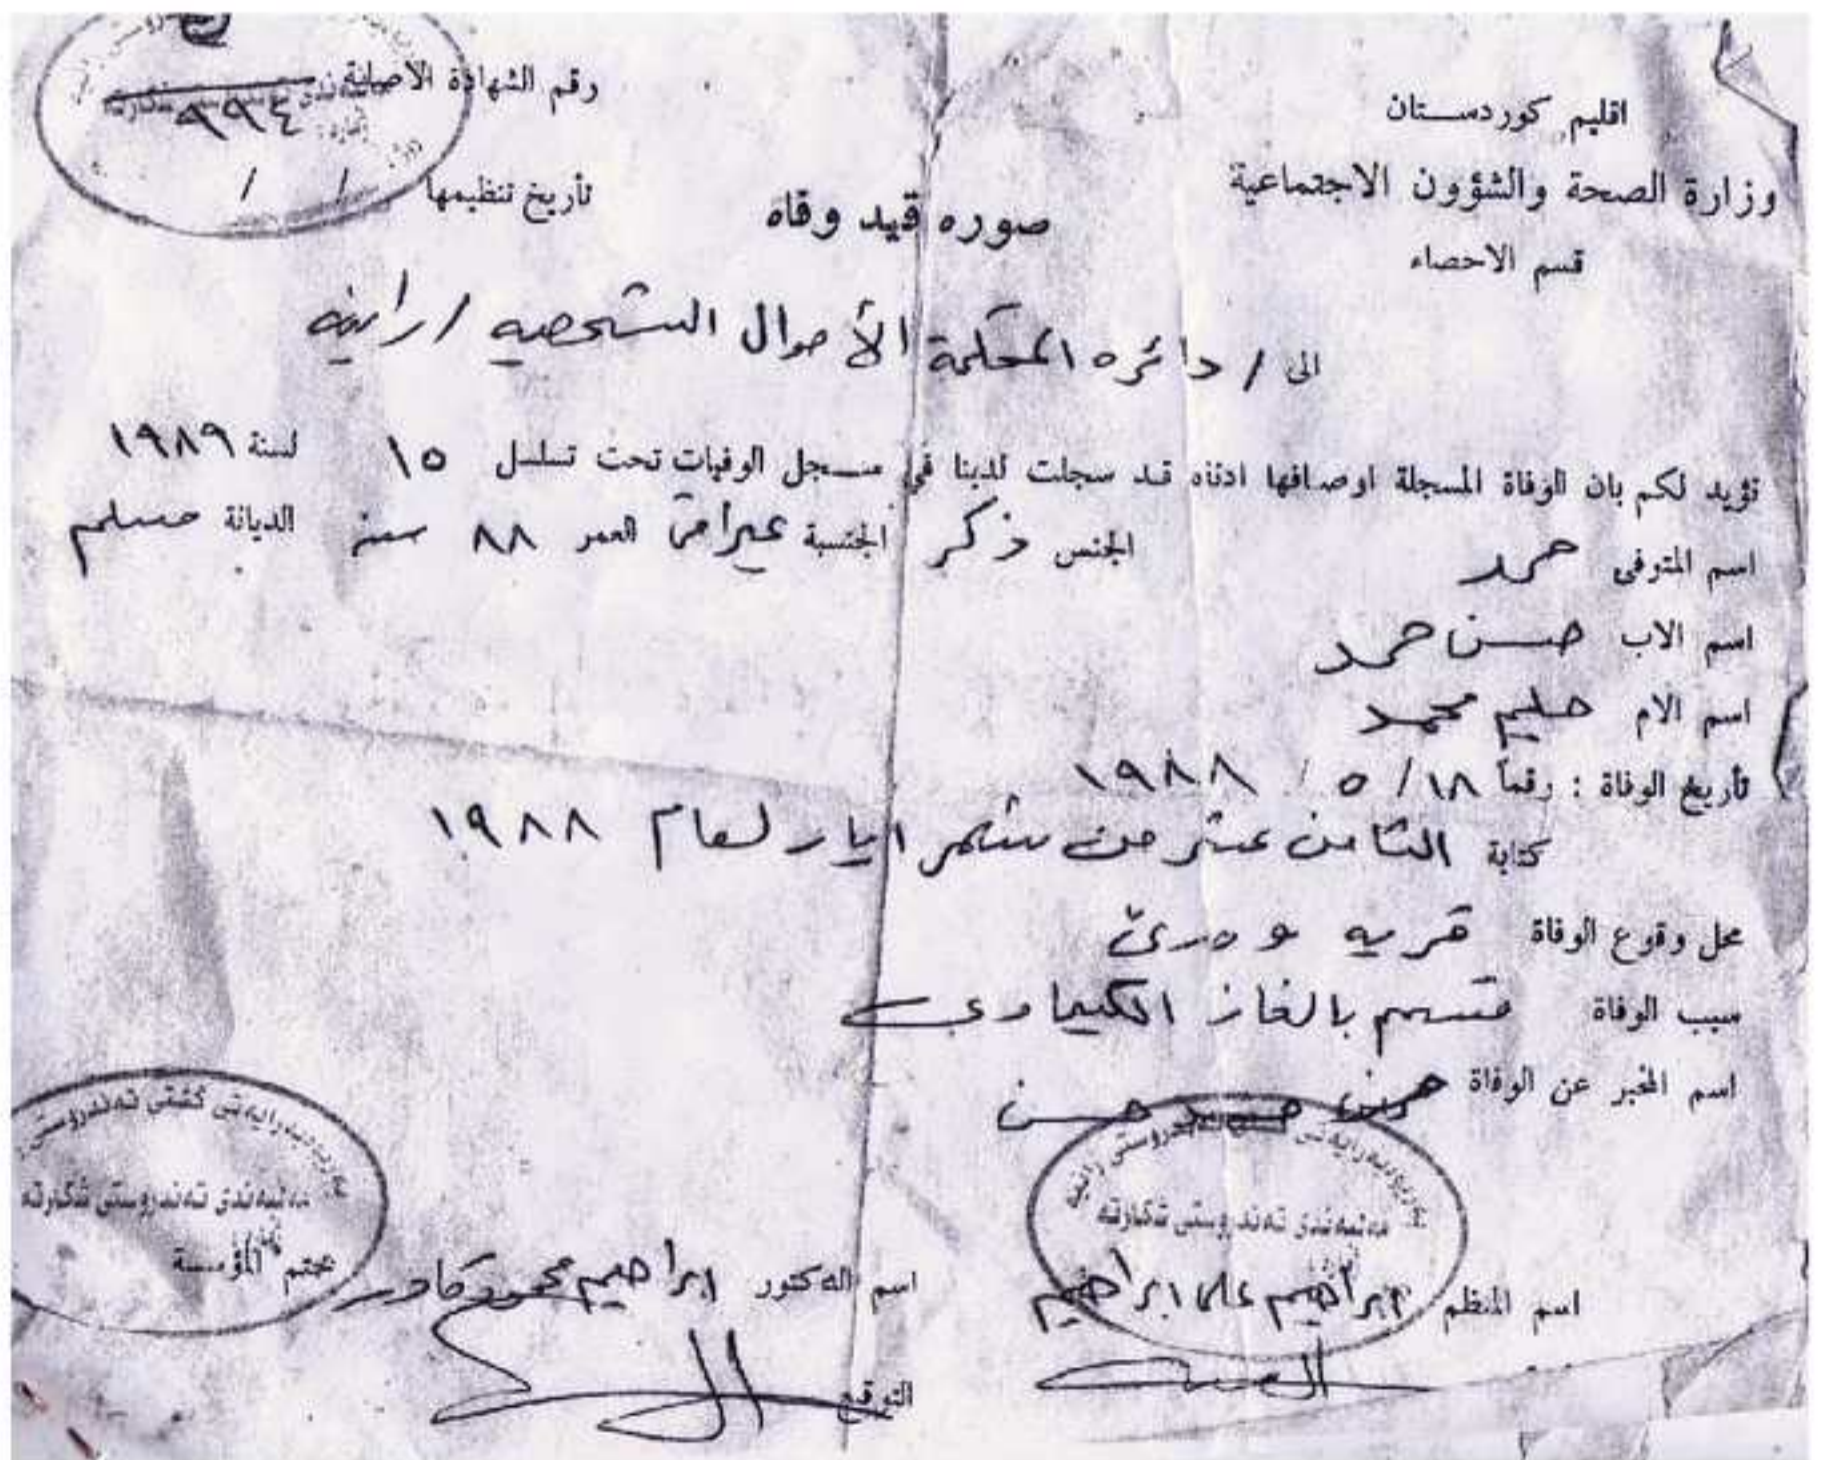 اقليم كوردستان
وزارة الصحة والشؤون الاجتماعية
قسم الاحصاء
رقم الشهادة الاصلية ٩٩٤
تأريخ تنظيمها / /
صوره قيد وفاه
الى / دائره المحكمة الأحوال الشخصيه / رانيه
نؤيد لكم بان الوفاة المسجلة اوصافها ادناه قد سجلت لدينا في سجل الوفيات تحت تسلسل ١٥ لسنة ١٩٨٩
اسم المتوفى حمد الجنس ذكر الجنسية عيراقى العمر ٨٨ سنه الديانة مسلم
اسم الاب حسن حمد
اسم الام حليم محمد
تأريخ الوفاة : رقماً ١٨ / ٥ / ١٩٨٨
كتابة الثامن عشر من شهر ايار لعام ١٩٨٨
محل وقوع الوفاة قريه
سبب الوفاة متسمم بالغاز الكيماوي
اسم المخبر عن الوفاة حسن
بەڕێوەبەرایەتی تەندروستی رانیه
مەڵبەندی تەندروستی شکارته
اسم المنظم ابراهيم علي ابراهيم
اسم الدكتور ابراهيم محمود قادر
التوقيع
بەڕێوەبەرایەتی گشتی تەندروستی
مەڵبەندی تەندروستی شکارته
ختم المؤسسة